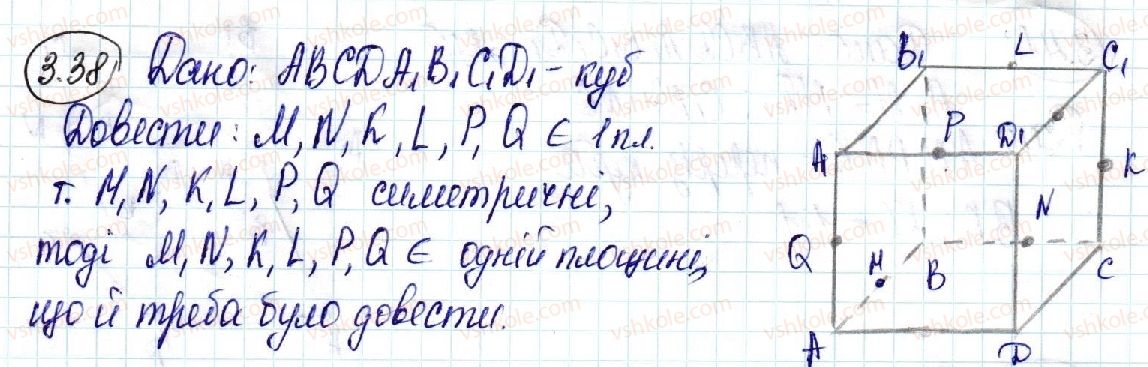 3.38 Дано: ABCDA₁B₁C₁D₁ - куб
Довести: M, N, K, L, P, Q ∈ 1 пл.
т. M, N, K, L, P, Q симетричні,
тоді M, N, K, L, P, Q ∈ одній площині,
що й треба було довести.
B₁ L C₁
A P D₁ K
Q M B N C
A D
vshkole.com